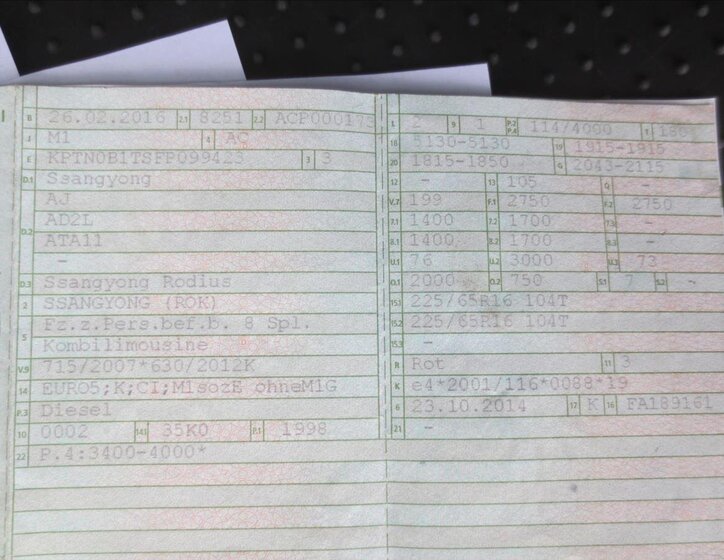 B 26.02.2016 2.1 8251 2.2 ACP000175
J M1 4 AC
E KPTN0B1TSFP099423 3 3
D.1 Ssangyong
AJ
D.2 AD2L
ATA11
-
D.3 Ssangyong Rodius
2 SSANGYONG (ROK)
5 Fz.z.Pers.bef.b. 8 Spl.
Kombilimousine
V.9 715/2007*630/2012K
14 EURO5;K;CI;M1sozE ohneM1G
P.3 Diesel
10 0002 14.1 35K0 P.1 1998
22 P.4:3400-4000*
L 2 9 1 P.2 P.4 114/4000 T
18 5130-5130 19 1915-1915
20 1815-1850 G 2043-2115
12 - 13 105 Q -
V.7 199 F.1 2750 F.2 2750
7.1 1400 7.2 1700 7.3 -
8.1 1400 8.2 1700 8.3 -
U.1 76 U.2 3000 U.3 73
O.1 2000 O.2 750 S.1 7 S.2 -
15.1 225/65R16 104T
15.2 225/65R16 104T
15.3 -
R Rot 11 3
K e4*2001/116*0088*19
6 23.10.2014 17 K 16 FA189161
21 -